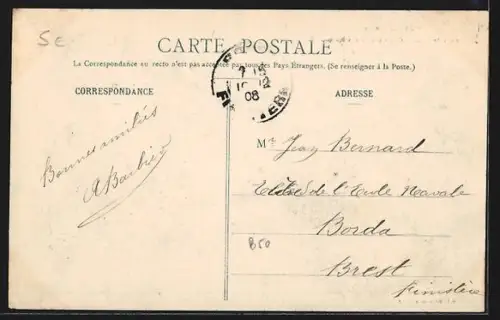 5c
CARTE POSTALE
La Correspondance au recto n'est pas acceptée par tous les Pays Étrangers. (Se renseigner à la Poste.)
CORRESPONDANCE
ADRESSE
08
Bonnes amitiés
A Barbier
Mr Jean Bernard
Elève de l'Ecole Navale
Borda
B50
Brest
Finistère